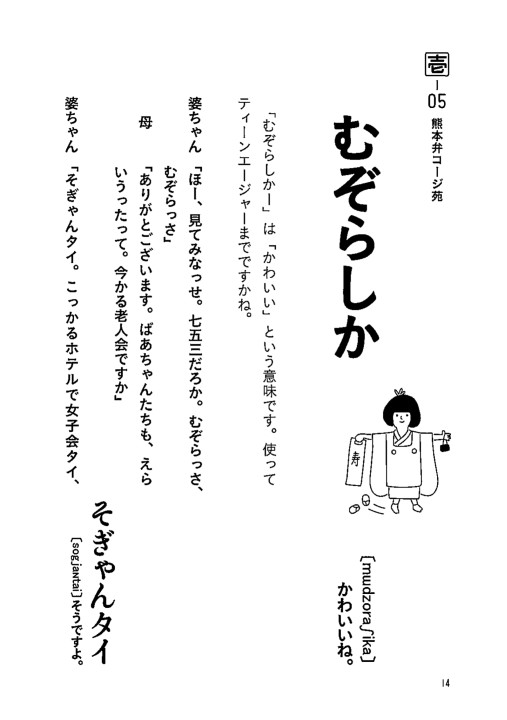 壱
05
熊本弁コージ苑
むぞらしか
寿
[mɯdzoraʃika]
かわいいね。
「むぞらしかー」は「かわいい」という意味です。使って
ティーンエージャーまでですかね。
婆ちゃん「ほー、見てみなっせ。七五三だろか。むぞらっさ、
むぞらっさ」
母「ありがとございます。ばあちゃんたちも、えら
いうったって。今かる老人会ですか」
婆ちゃん「そぎゃんタイ。こっかるホテルで女子会タイ、
そぎゃんタイ
[sogjaɴtai]そうですよ。
14